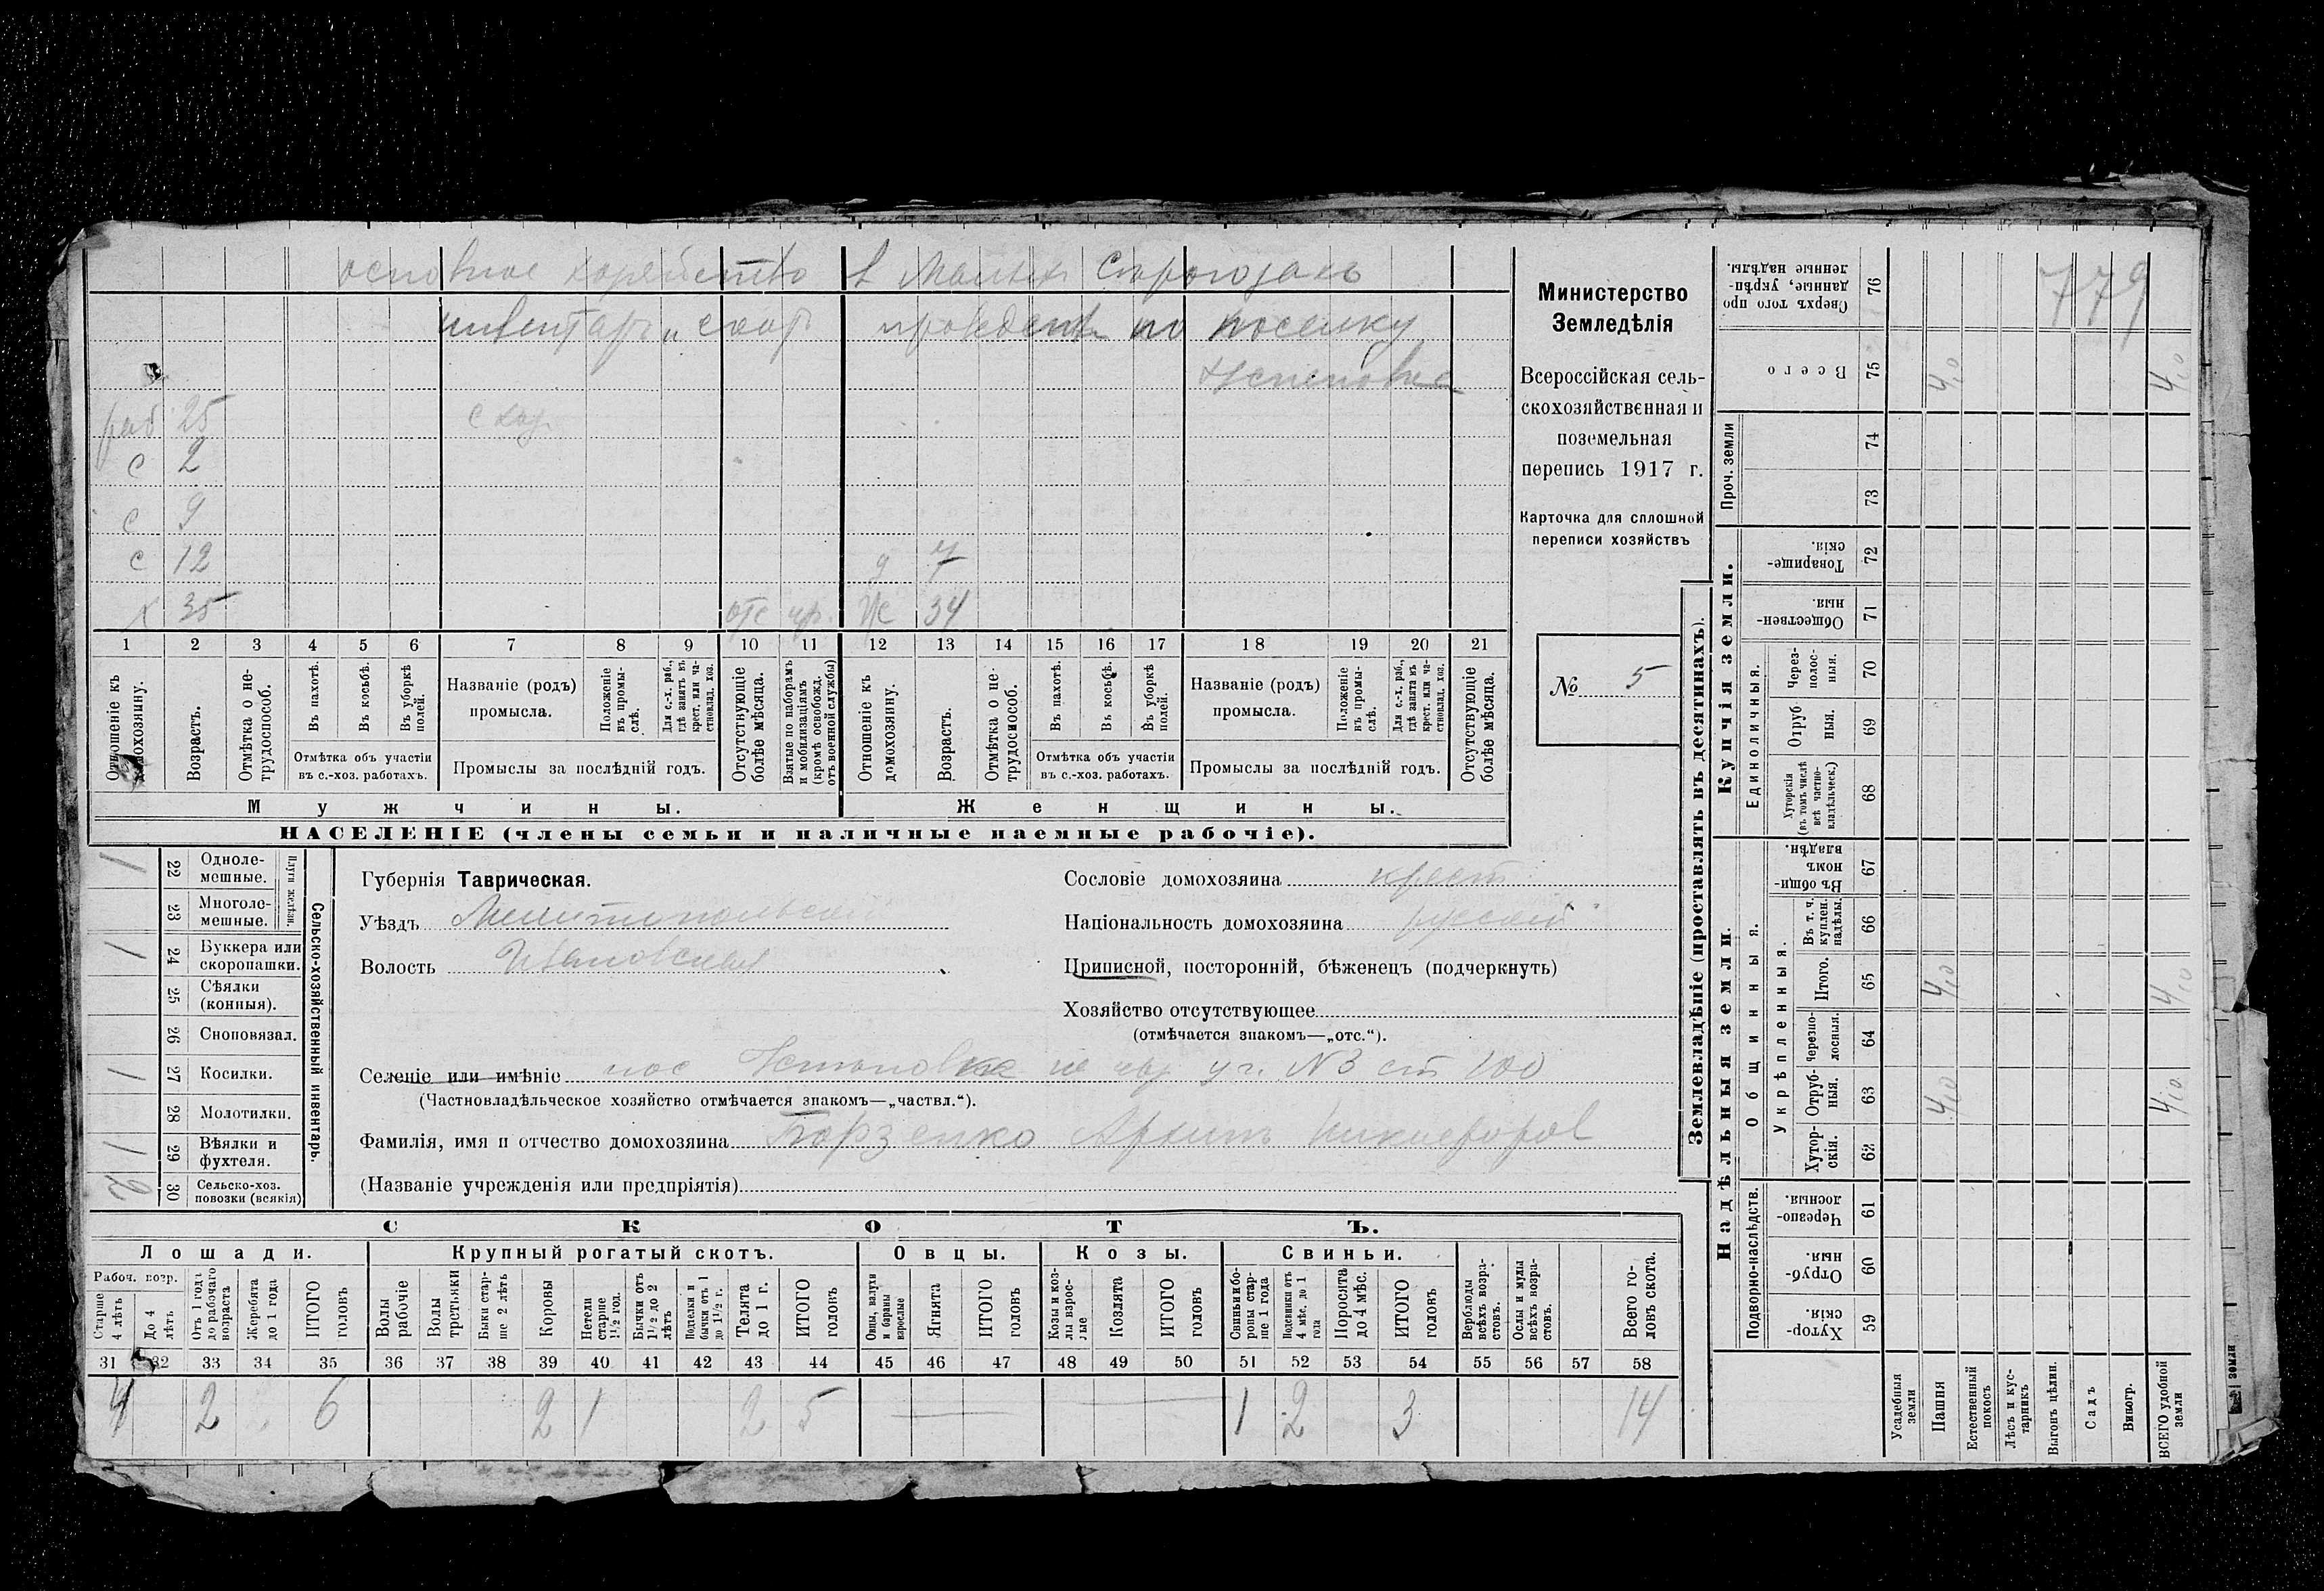 основное хозяйство в Малых
инвентарь и скот по поселку
779
раб 25
с 2
с 9
с 12 д 7
х 35 отс ж 34
1 2 3 4 5 6 7 8 9 10 11 12 13 14 15 16 17 18 19 20 21
Отношеніе къ домохозяину.
Возрастъ.
Отмѣтка о нетрудоспособ.
Въ пахотѣ.
Въ косьбѣ.
Въ уборкѣ полей.
Отмѣтка объ участіи въ с.-хоз. работахъ.
Названіе (родъ) промысла.
Положеніе въ промыслѣ.
Для с.-х. раб., гдѣ занятъ въ крест. или частновлад. хоз.
Промыслы за послѣдній годъ.
Отсутствующіе болѣе мѣсяца.
Взятые по наборамъ и мобилизаціямъ (кромѣ освобожд. отъ военной службы)
Отношеніе къ домохозяину.
Возрастъ.
Отмѣтка о нетрудоспособ.
Въ пахотѣ.
Въ косьбѣ.
Въ уборкѣ полей.
Отмѣтка объ участіи въ с.-хоз. работахъ.
Названіе (родъ) промысла.
Положеніе въ промыслѣ.
Для с.-х. раб., гдѣ занята въ крест. или частновлад. хоз.
Промыслы за послѣдній годъ.
Отсутствующіе болѣе мѣсяца.
Мужчины. Женщины.
НАСЕЛЕНІЕ (члены семьи и наличные наемные рабочіе).
Министерство
Земледѣлія
Всероссійская сель-
скохозяйственная и
поземельная
перепись 1917 г.
Карточка для сплошной
переписи хозяйствъ
№ 5
Сельско-хозяйственный инвентарь.
Плуги желѣзн.
22 Однолемешные. 1
23 Многолемешные.
24 Буккера или скоропашки. 1
25 Сѣялки (конныя).
26 Сноповязал.
27 Косилки. 1
28 Молотилки.
29 Вѣялки и фухтеля. 1
30 Сельско-хоз. повозки (всякія) 2
Губернія Таврическая.
Уѣздъ Мелитопольский
Волость Ивановская
Сословіе домохозяина крест
Національность домохозяина русский
Приписной, посторонній, бѣженецъ (подчеркнуть)
Хозяйство отсутствующее
(отмѣчается знакомъ—„отс.“).
Селеніе или имѣніе пос уч. N3 ст 100
(Частновладѣльческое хозяйство отмѣчается знакомъ—„частвл.“).
Фамилія, имя и отчество домохозяина Борзенко Архипъ Никифоров
(Названіе учрежденія или предпріятія)
СКОТЪ.
Лошади. Крупный рогатый скотъ. Овцы. Козы. Свиньи.
Рабоч. возр.
Старше 4 лѣтъ
До 4 лѣтъ
Отъ 1 года до рабочаго возраста
Жеребята до 1 года
ИТОГО головъ
Волы рабочіе
Волы третьяки
Быки старше 2 лѣтъ
Коровы
Нетели старше 1½ год.
Бычки отъ 1½ до 2 лѣтъ
Подтелки и бычки отъ 1 до 1½ г.
Телята до 1 г.
ИТОГО головъ
Овцы, валухи и бараны взрослые
Ягнята
ИТОГО головъ
Козы и козлы взрослые
Козлята
ИТОГО головъ
Свиньи и боровы старше 1 года
Подсвинки отъ 4 мѣс. до 1 года
Поросята до 4 мѣс.
ИТОГО головъ
Верблюды всѣхъ возрастовъ.
Ослы и мулы всѣхъ возрастовъ.
Всего головъ скота.
31 32 33 34 35 36 37 38 39 40 41 42 43 44 45 46 47 48 49 50 51 52 53 54 55 56 57 58
4 2 6 2 1 2 5 — — 1 2 3 14
Землевладѣніе (проставлять въ десятинахъ).
Надѣльныя земли. Купчія земли.
Подворно-наслѣдств.
Общинныя.
Укрѣпленныя.
Единоличныя.
Проч. земли
59 Хуторскія.
60 Отрубныя.
61 Черезполосныя.
62 Хуторскія.
63 Отрубныя. 4,0 4,0
64 Черезполосныя.
65 Итого. 4,0 4,0
66 Въ т. ч. куплен. надѣлы.
67 Въ общинномъ владѣн.
68 Хуторскія (въ томъ числѣ всѣ частновладѣльческ.)
69 Отрубныя.
70 Черезполосныя.
71 Общественныя.
72 Товарищескія.
73
74
75 Всего 4,0 4,0
76 Сверхъ того проданные, укрѣпленные надѣлы.
Усадебныя земли
Пашня
Естественный покосъ
Лѣсъ и кустарникъ
Выгонъ цѣлин.
Садъ
Виногр.
ВСЕГО удобной земли
земли